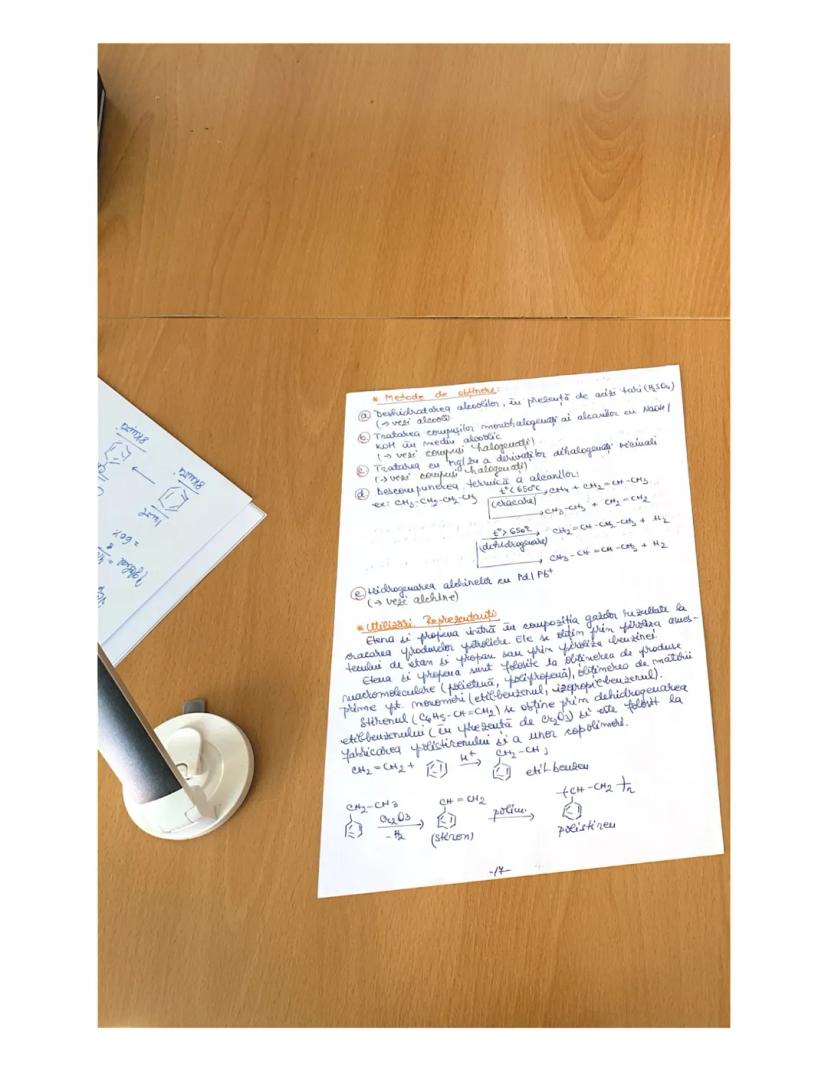 * Metode de obținere:
a) Deshidratarea alcoolilor, în prezență de acizi tari (H2SO4)
(→ vezi alcooli)
b) Tratarea compușilor monohalogenați ai alcanilor cu NaOH/
KOH în mediu alcoolic
(→ vezi compuși halogenați)
c) Tratarea cu Mg/Zn a derivaților dihalogenați vicinali
(→ vezi compuși halogenați)
d) Descompunerea termică a alcanilor:
ex: CH3-CH2-CH2-CH3 t°<650°C (cracare) → CH4 + CH2=CH-CH3
→ CH3-CH3 + CH2=CH2
t°>650°C (dehidrogenare) → CH2=CH-CH2-CH3 + H2
→ CH3-CH=CH-CH3 + H2
e) Hidrogenarea alchinelor cu Pd/Pb+
(→ vezi alchine)
* Utilizări. Reprezentanți
Etena și propena intră în compoziția gazelor rezultate la
cracarea produselor petroliere. Ele se obțin prin piroliza ames-
tecului de etan și propan sau prin piroliza benzinei.
Etena și propena sunt folosite la obținerea de produse
macromoleculare (polietenă, polipropenă), obținerea de materii
prime pt. monomeri (etil-benzenul, izopropilbenzenul).
Stirenul (C6H5-CH=CH2) se obține prin dehidrogenarea
etilbenzenului (în prezență de Cr2O3) și este folosit la
fabricarea polistirenului și a unor copolimeri.
CH2=CH2 + H+ → CH2-CH3
etil-benzen
CH2-CH3 Cr2O3 -H2 → CH=CH2 polim. → (CH-CH2)n
(stiren) polistiren
-17-